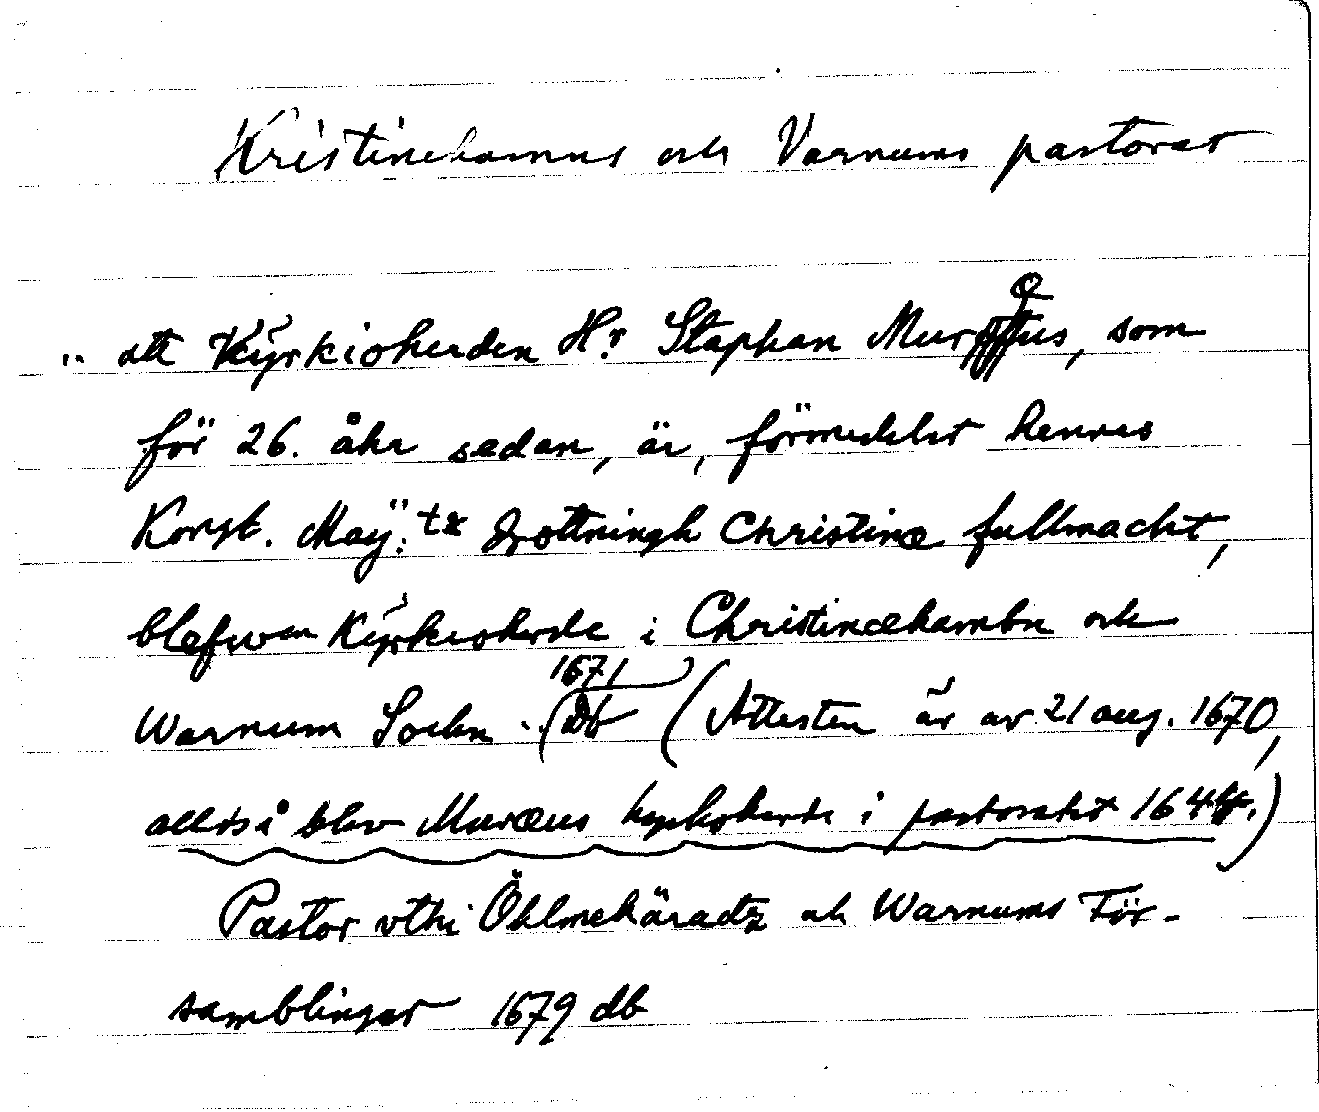 Kristinehamns och Varnums pastorat
" att Kÿrkioherden Hr. Staphan Muræus, som
för 26. åhr sedan, är, förmedelst hennes
Kongt. Maÿ:tz Drottningh Christinæ fullmacht,
blefwen Kÿrkioherde i Christinæhambn och
Warnum Sochn." (1671 Db) (Attesten är av 21 aug. 1670,
alltså blev Muræus kyrkoherde i pastoratet 1644.)
Pastor vthi Öhlmehäradz och Warnums För-
samblingar 1679 db